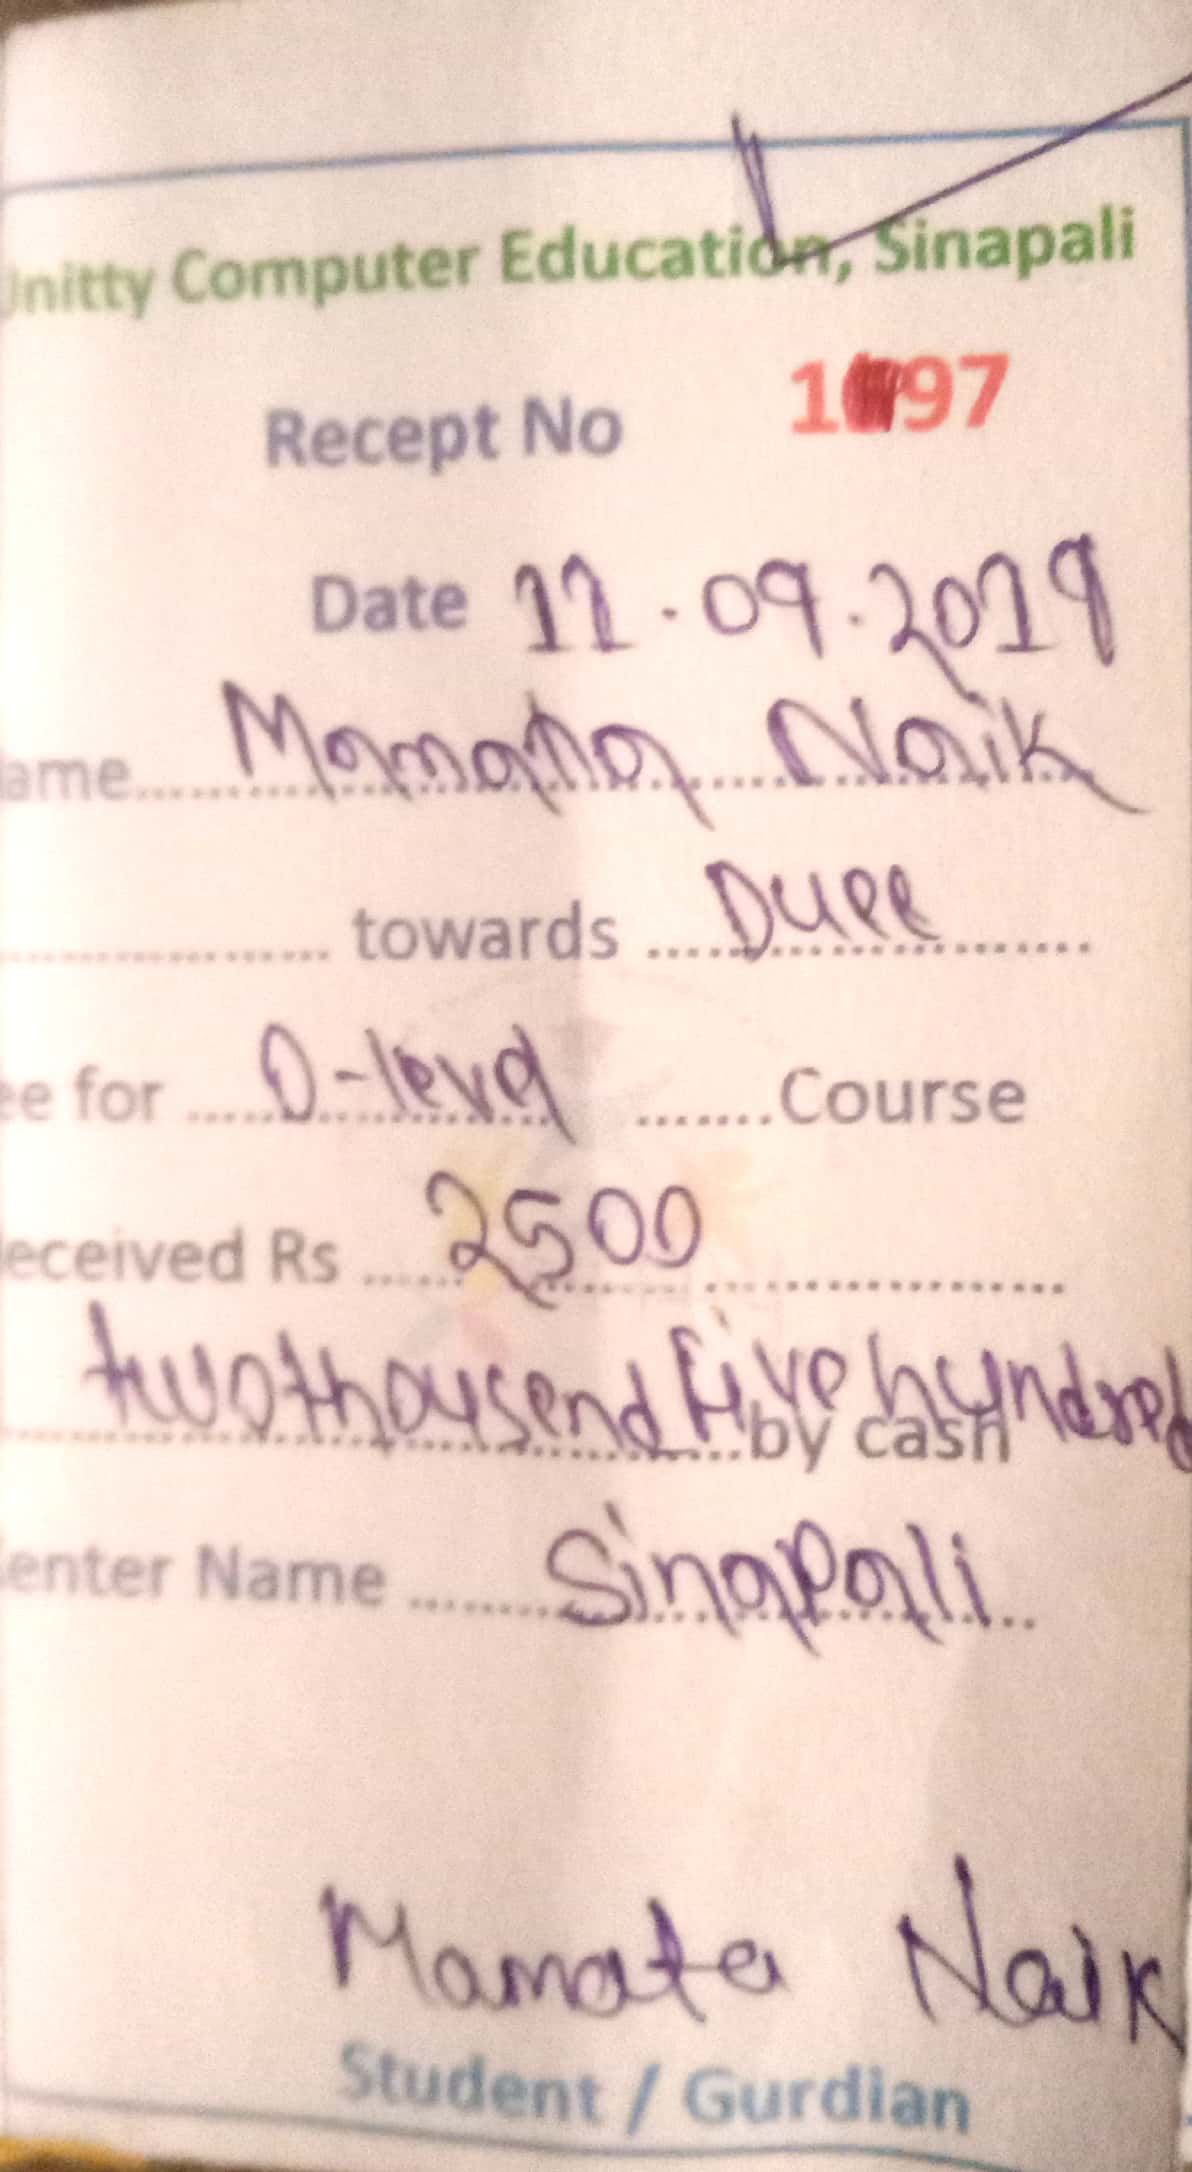 Unitty Computer Education, Sinapali
Recept No 1 97
Date 11.09.2019
ame Mamata Naik
towards Duee
ee for O-level Course
eceived Rs 2500
two thousend five hundred by cash
enter Name Sinapali
Mamata Naik
Student / Gurdian